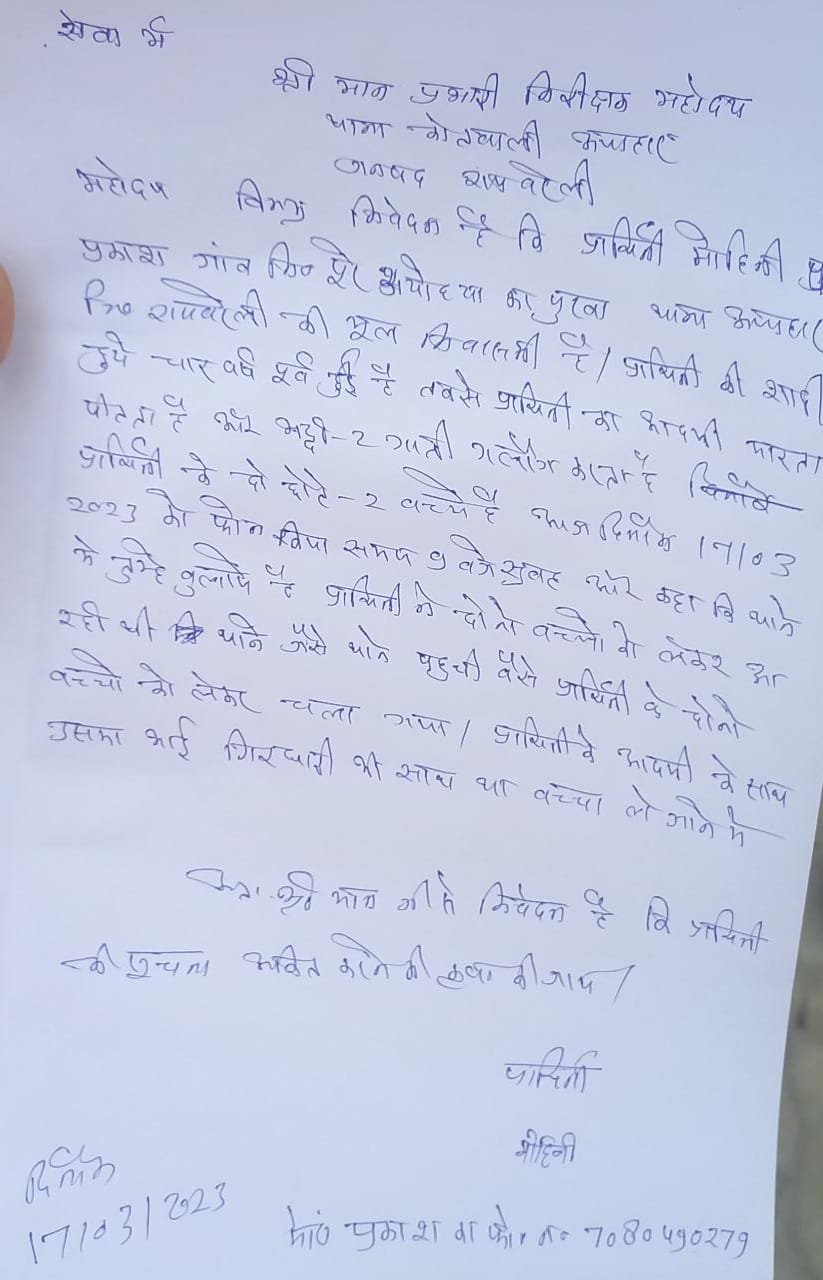 सेवा में
श्री मान प्रभारी निरीक्षक महोदय
थाना कोतवाली ऊंचाहार
जनपद रायबरेली
महोदय विनम्र निवेदन है कि प्रार्थिनी मोहिनी पु
प्रकाश गांव नि० पूरे अयोध्या का पुरवा थाना ऊंचाहार
जि० रायबरेली की मूल निवासनी है। प्रार्थिनी की शादी
हुये चार वर्ष पूर्व हुई है तबसे प्रार्थिनी का आदमी मारता
पीटता है और भद्दी-2 गाली गलौज करता है
प्रार्थिनी के दो छोटे-2 बच्चे है आज दिनाँक 17/03
2023 को फोन किया समय 9 बजे सुबह और कहा कि थाने
में तुम्हे बुलाये है प्रार्थिनी ने दोनो बच्चो को लेकर आ
रही थी थाने जैसे थाने पहुची वैसे प्रार्थिनी के दोनो
बच्चो को लेकर चला गया। प्रार्थिनी के आदमी के साथ
उसका भाई गिरधारी भी साथ था बच्चा ले जाने में
अतः श्री मान जी से निवेदन है कि प्रार्थिनी
की सूचना अंकित करने की कृपा की जाय।
प्रार्थिनी
मोहिनी
दिनाँक
17/03/2023
प्रकाश का फो. न० 7080490279